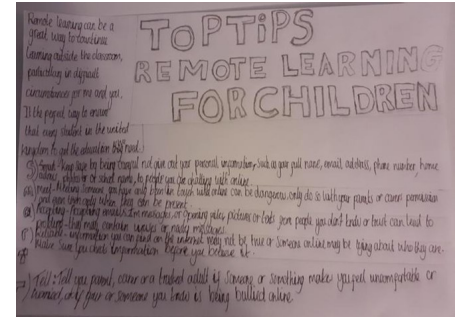 Remote learning can be a
great way to continue
learning outside the classroom,
particullary in difficult
circumstances for me and you.
It the propal way to ensure
that every student in the united
kingdom to get the education they need.
TOP TIPS
REMOTE LEARNING
FOR CHILDREN
Smart - keep safe by being careful not give out your personal information, such as your full name, email address, phone number, home
address, photos or school name, to people you are chatting with online.
meet - meeting someone you have only been in touch with online can be dangerous, only do so with your parents or carers permission
and even then only when they can be present.
Accepting - Accepting emails, Im messages, or opening files, pictures or texts from people you don't know or trust can lead to
problem - they may contain viruses or nasty messages.
Reliable - information you can find on the internet may not be true or someone online may be lying about who they are.
Make sure you check information before you believe it.
Tell: Tell your parent, carer or a trusted adult if someone or something make you feel uncomfortable or
worried, or if your or someone you know is being bullied online.